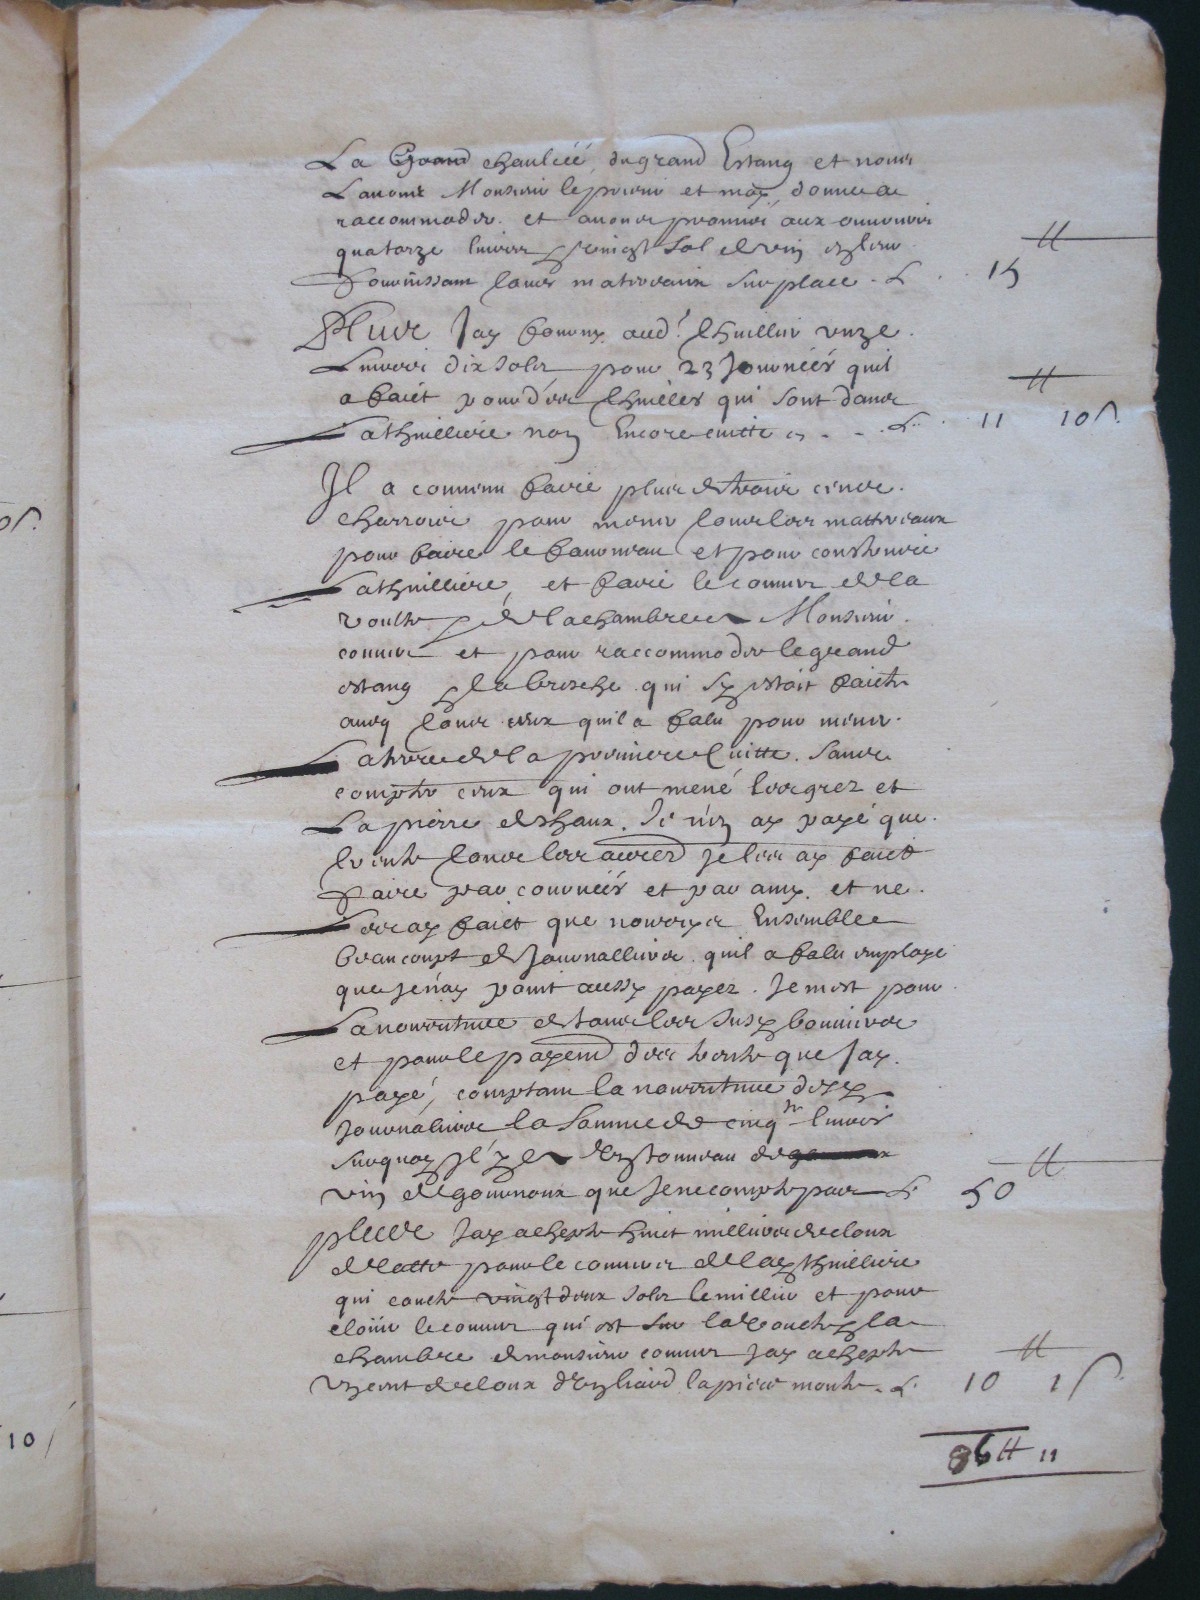 La Grand chaulcée du grand Estang et nous
Lauons Monsieur le prieur et moy donnee a
raccommoder et auons promis aux ouuriers
quatorze liures vingt sol de vin en leur
fournissant tous mattereaux sur place 15 ₶
Plus Jay fourny aud. thuillier unze
Liures dix solz pour 23 Journéés quil
a faict pour des thuilles qui sont dans
La thuilliere non Encore cuitte 11 ₶ 10 s.
Il a conuenu faire plus de trois cens
charrois pour mener tous les mattereaux
pour faire le fourneau et pour construire
La thuilliere, et faire le couuer de la
voulte de la chambre Monsieur
couuer et pour raccommoder le grand
estang la bresche qui sy estoit faicte
aueq tous ceux quil a falu pour mener
La terre de la premiere Cuitte. Sans
compter ceux qui ont mené les grez et
La pierre de chaux. Je n'en ay payé que
trente tous les autres Je les ay faict
faire par couruéés et par amy et ne
Les ay faict que nourryr Ensemble
beaucoupt de Journalliers quil a falu employe
que Je n'ay point aussy payez. Je mest pour
La nourriture de tous les susy bouuiers
et pour le payem des trente que Jay
payé, comptant la nourriture desy
Journaliers la somme de cinq.te liures
tonneau de
vin de gournoux que Je ne compte pas 50 ₶
plus Jay achepte huict milliers de cloux
de latte pour le couuers de lay thuilliere
qui couste vingt deux solz le millier et pour
cloüer le couuer qui est sur la voulte la
chambre de monsieur couuer Jay achepte
un cent de cloux la piece monte 10 ₶ 1 s.
86 ₶ 11
10